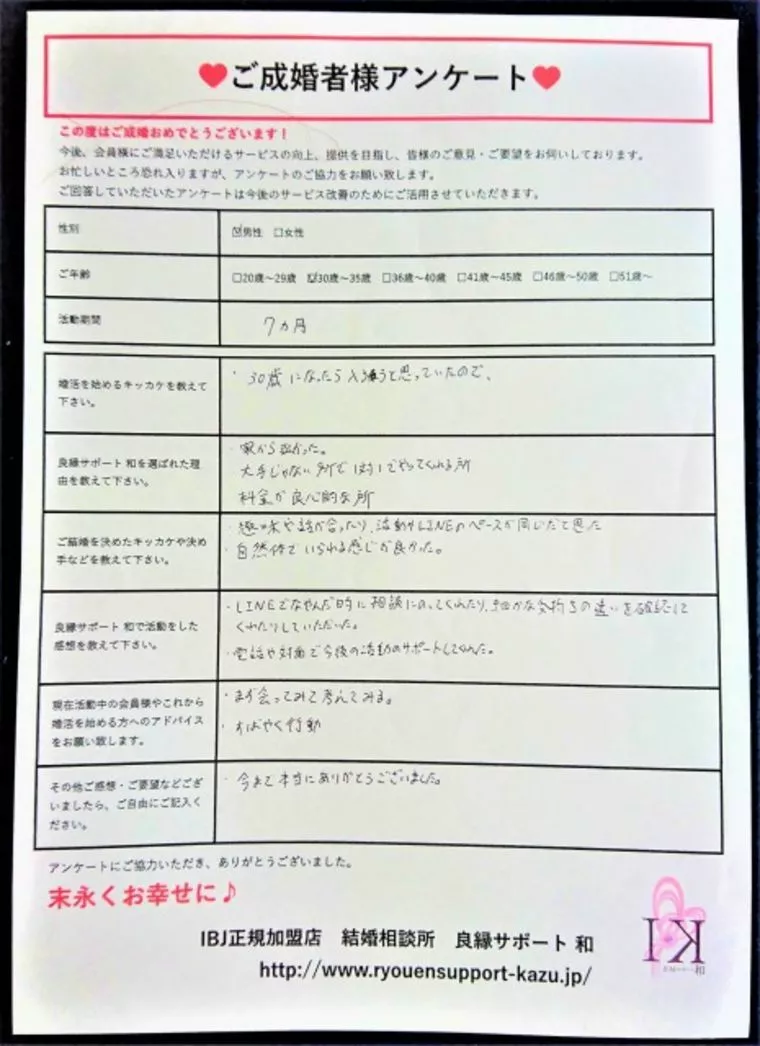 ♥ご成婚者様アンケート♥
この度はご成婚おめでとうございます！
今後、会員様にご満足いただけるサービスの向上、提供を目指し、皆様のご意見・ご要望をお伺いしております。
お忙しいところ恐れ入りますが、アンケートのご協力をお願い致します。
ご回答していただいたアンケートは今後のサービス改善のためにご活用させていただきます。
性別
☑男性 □女性
ご年齢
□20歳～29歳 ☑30歳～35歳 □36歳～40歳 □41歳～45歳 □46歳～50歳 □51歳～
活動期間
7ヵ月
婚活を始めるキッカケを教えて
下さい。
・30歳になったら入ろうと思っていたので、
良縁サポート 和を選ばれた理
由を教えて下さい。
・家から近かった。
大手じゃない所で1対1でやってくれる所
料金が良心的な所
ご結婚を決めたキッカケや決め
手などを教えて下さい。
・趣味や話が合ったり、活動やLINEのペースが同じだと思た
・自然体でいられる感じが良かった。
良縁サポート 和で活動をした
感想を教えて下さい。
・LINEでなやんだ時に相談にのってくれたり、細かな気持ちの違いを確認して
くれたりしていただいた。
・電話や対面で今後の活動のサポートしてくれた。
現在活動中の会員様やこれから
婚活を始める方へのアドバイス
をお願い致します。
・まず会ってみて考えてみる。
・すばやく行動
その他ご感想・ご要望などござ
いましたら、ご自由にご記入く
ださい。
・今まで本当にありがとうございました。
アンケートにご協力いただき、ありがとうございました。
末永くお幸せに♪
IBJ正規加盟店 結婚相談所 良縁サポート 和
http://www.ryouensupport-kazu.jp/